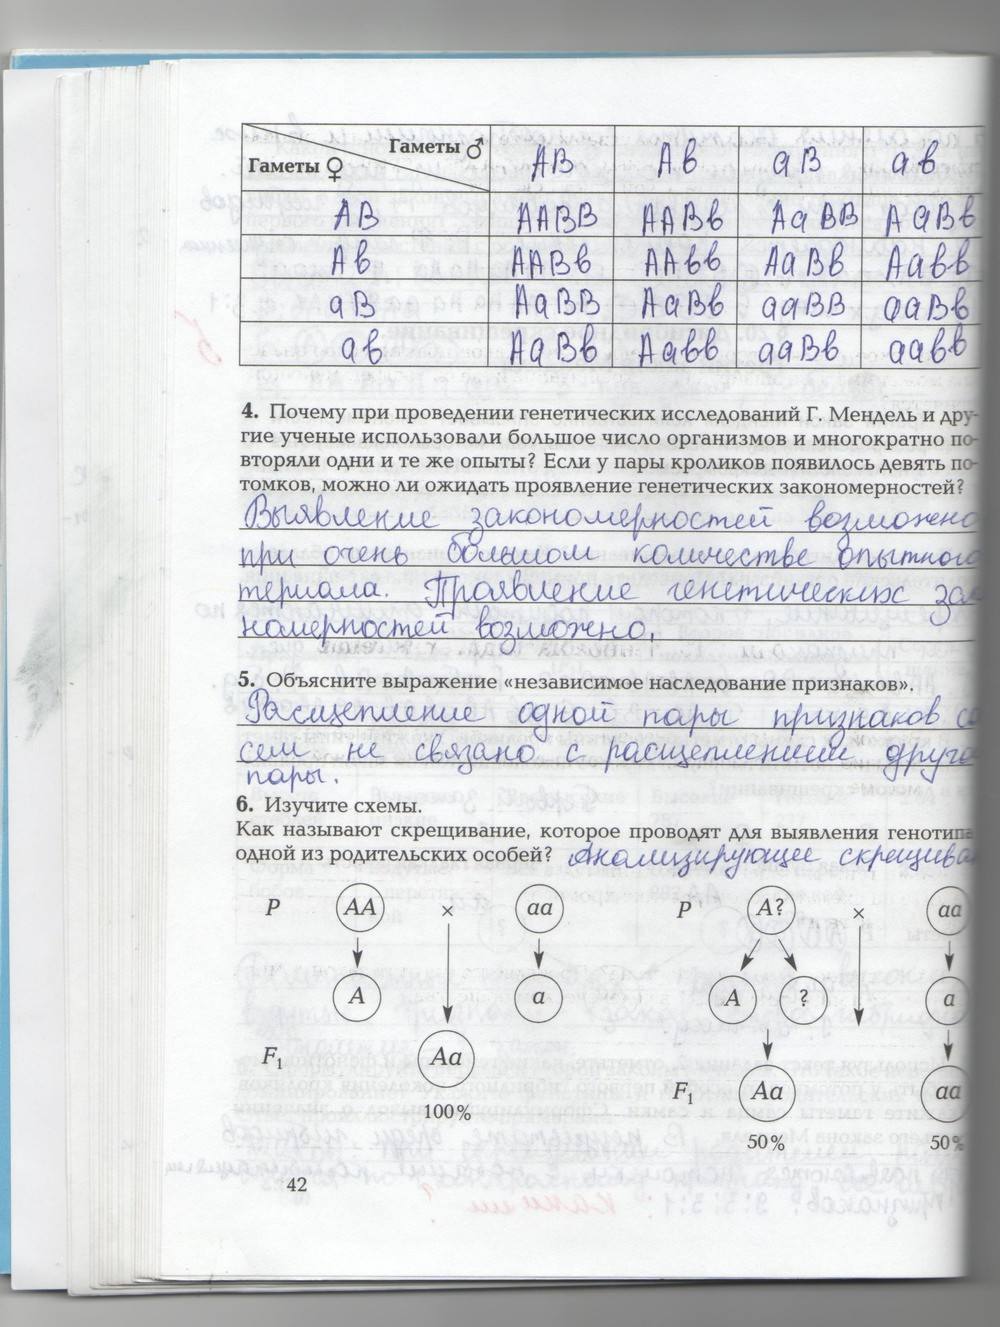 Гаметы ♂ AB Aв aB aв
Гаметы ♀
AB AABB AABв AaBB AaBв
Aв AABв AAвв AaBв Aaвв
aB AaBB AaBв aaBB aaBв
aв AaBв Aaвв aaBв aaвв
4. Почему при проведении генетических исследований Г. Мендель и дру-
гие ученые использовали большое число организмов и многократно по-
вторяли одни и те же опыты? Если у пары кроликов появилось девять по-
томков, можно ли ожидать проявление генетических закономерностей?
Выявление закономерностей возможно
при очень большом количестве опытного
териала. Проявление генетических зак
номерностей возможно.
5. Объясните выражение «независимое наследование признаков».
Расщепление одной пары признаков со
сем не связано с расщеплением друго
пары.
6. Изучите схемы.
Как называют скрещивание, которое проводят для выявления генотипа
одной из родительских особей? Анализирующее скрещива
P AA × aa P A? × aa
A a A ? a
F1 Aa F1 Aa aa
100% 50% 50%
42